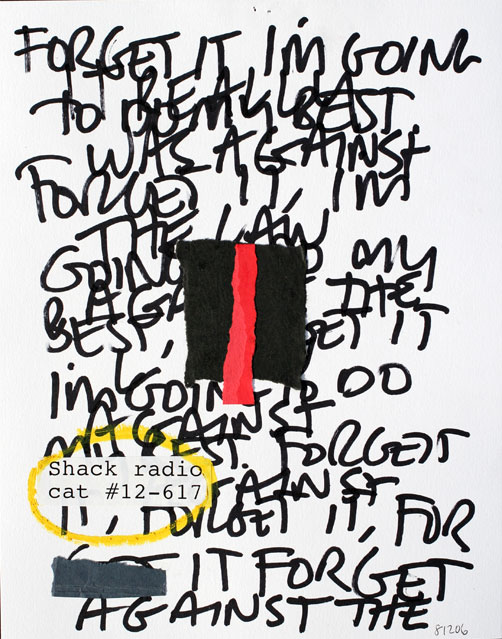 FORGET IT I'M GOING
REALLY
TO DO MY BEST
WAS AGAINST
FORGET IT, I'M
THE LAW
GOING DO MY
AGA THE
BEST, GET IT
I'M GOING TO DO
AGAINST
MY BEST. FORGET
Shack radio
cat #12-617
AINST
IT, FORGET IT, FOR
IT FORGET
AGAINST THE
81206